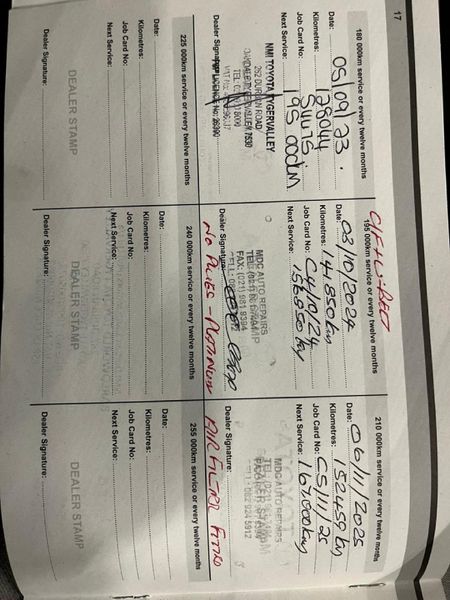 17
180 000km service or every twelve months
Date: 05/09/23.
Kilometres: 128044
Job Card No:
Next Service: 195 000km
NMI TOYOTA TYGERVALLEY
252 DURBAN ROAD
Dealer Signature:
195 000km service or every twelve months
Date: 03/10/2024
Kilometres: 141 850km
Job Card No: C4/10/24
Next Service: 156 850 km
MDC AUTO REPAIRS
FAX: (021) 981 8394
Dealer Signature:
No PLUGS - PLATINUM
210 000km service or every twelve months
Date: 06/11/2025
Kilometres: 152 459 km
Job Card No: C5/11/25
Next Service: 167 000 km
MDC AUTO REPAIRS
DEALER STAMP
CELL: 082 924 5912
Dealer Signature:
AIR FILTER FITTED
225 000km service or every twelve months
Date:
Kilometres:
Job Card No:
Next Service:
DEALER STAMP
Dealer Signature:
240 000km service or every twelve months
Date:
Kilometres:
Job Card No:
Next Service:
DEALER STAMP
Dealer Signature:
255 000km service or every twelve months
Date:
Kilometres:
Job Card No:
Next Service:
DEALER STAMP
Dealer Signature: